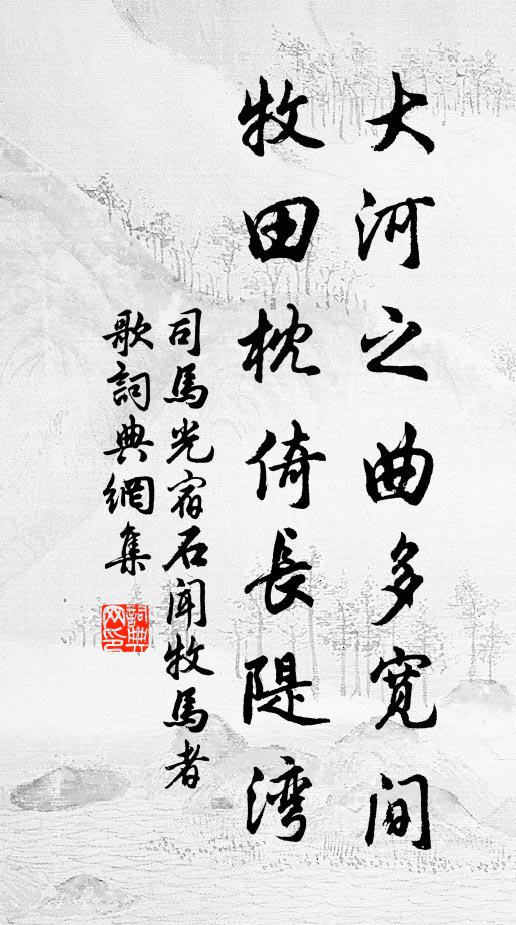 大河之曲多寬间
牧田枕倚長隄湾
司馬光宿石闻牧馬者
歌詞典網集
詞典网印